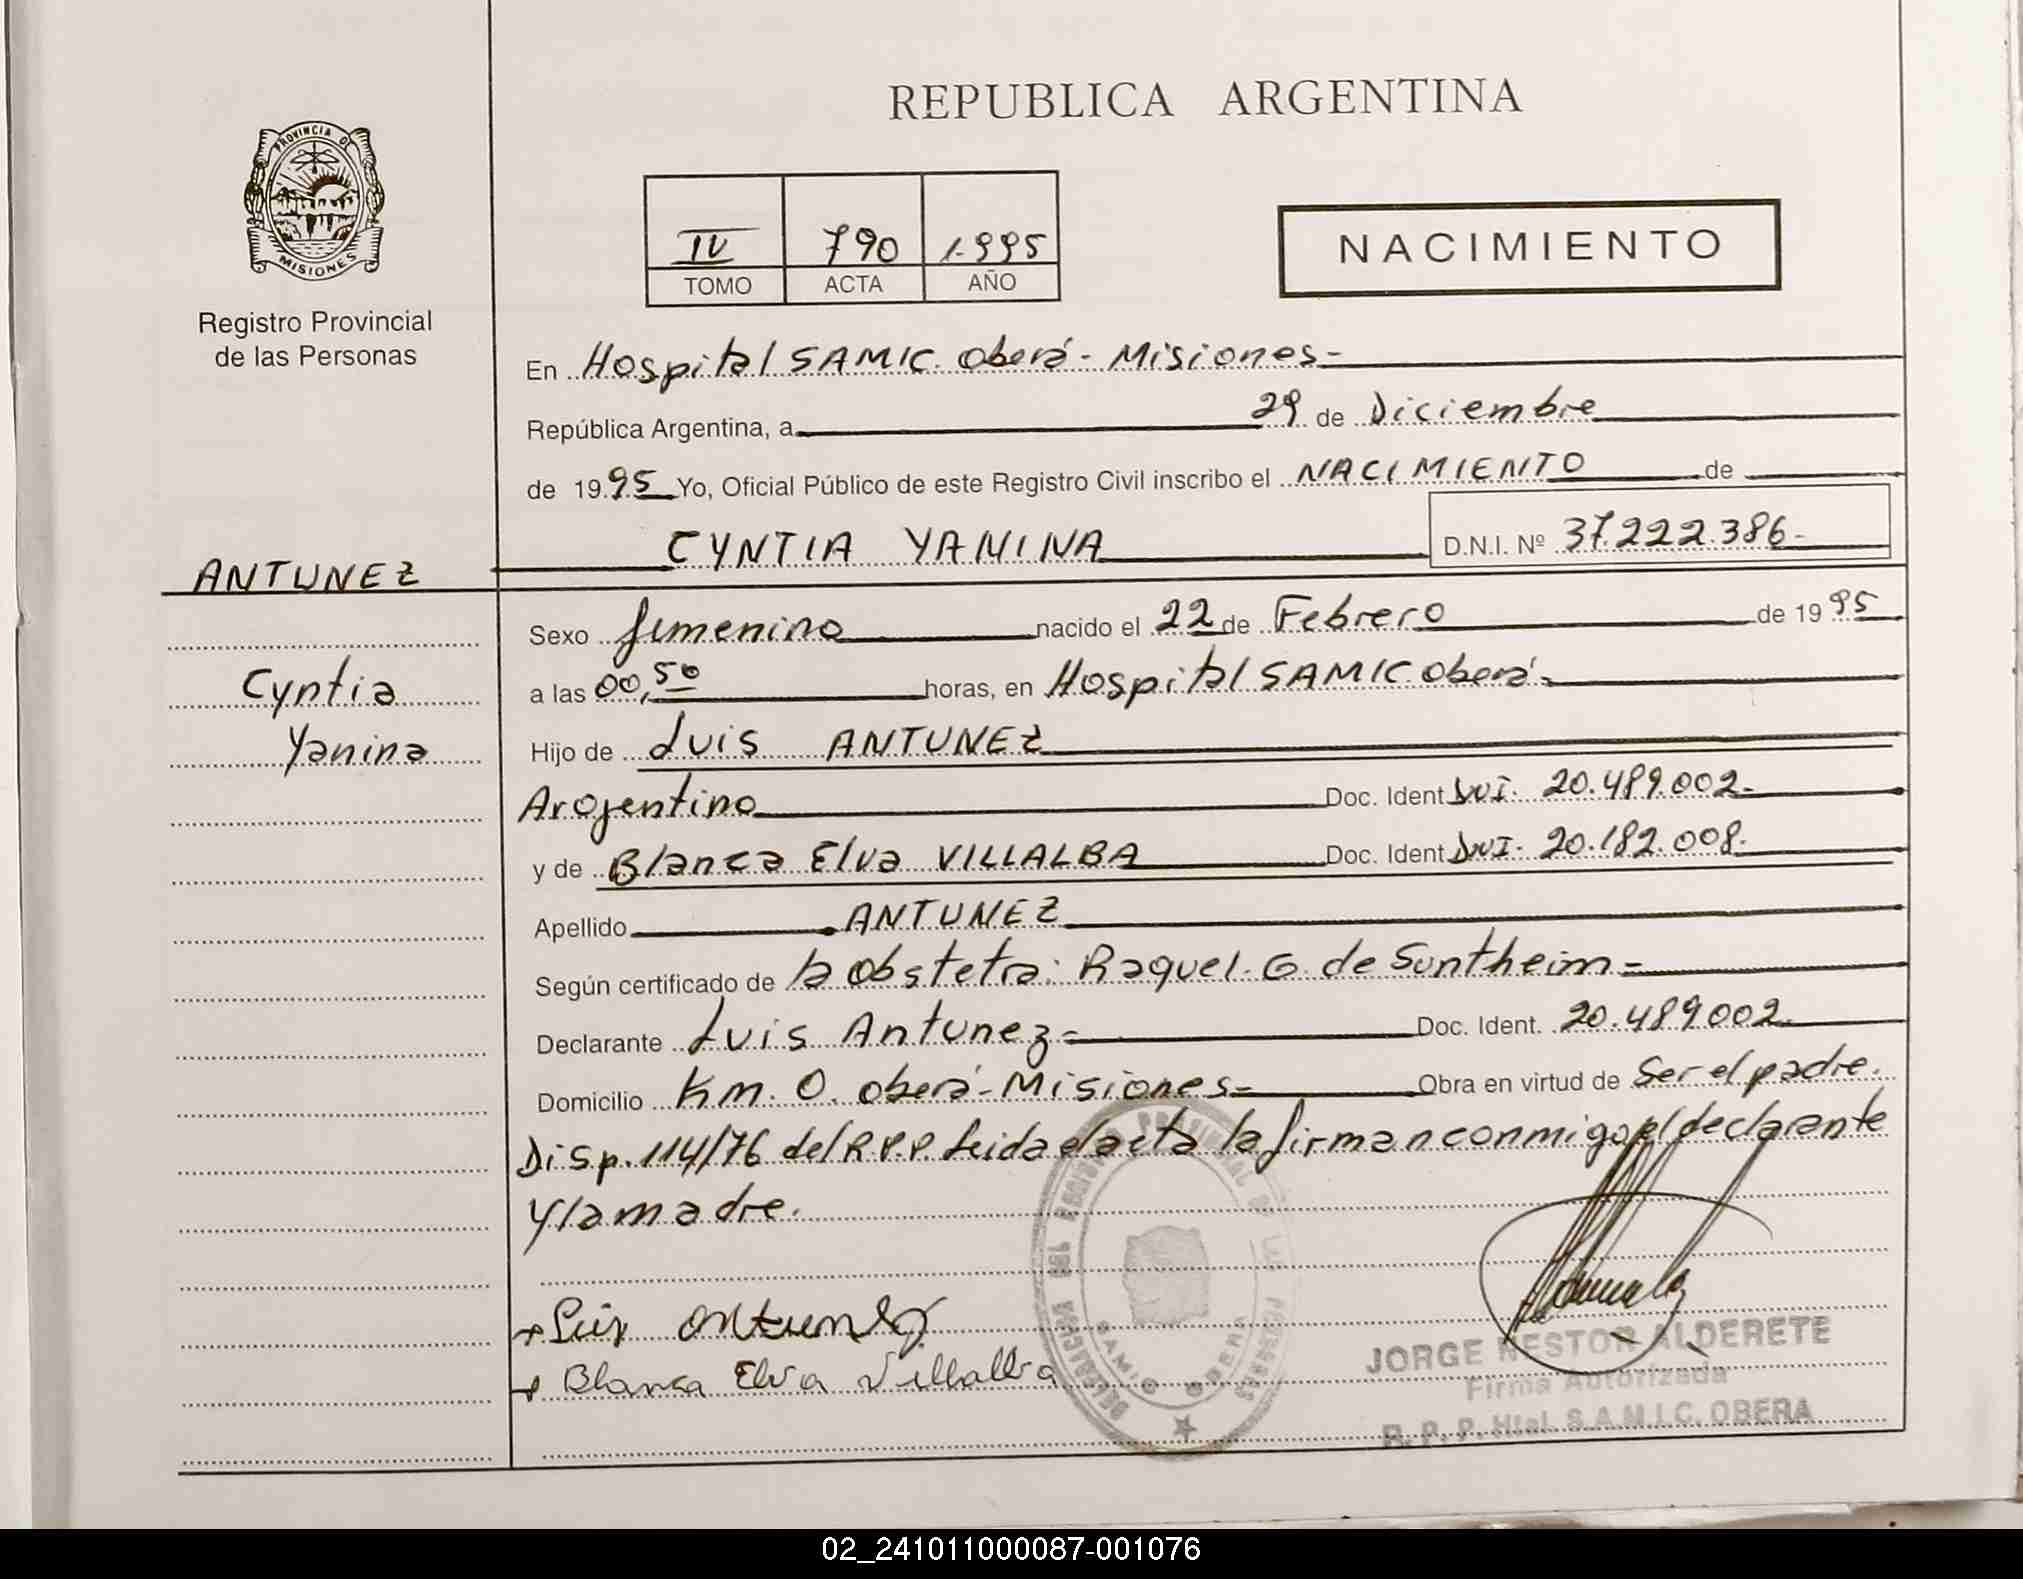 REPUBLICA ARGENTINA
PROVINCIA DE
MISIONES
Registro Provincial
de las Personas
IV 790 1.995
TOMO ACTA AÑO
NACIMIENTO
En Hospital SAMIC. Oberá - Misiones -
República Argentina, a 29 de Diciembre
de 1995 Yo, Oficial Público de este Registro Civil inscribo el NACIMIENTO de
CYNTIA YANINA D.N.I. Nº 37.222.386-
ANTUNEZ
Cyntia
Yanina
Sexo femenino nacido el 22 de Febrero de 1995
a las 00,50 horas, en Hospital SAMIC Oberá-
Hijo de Luis ANTUNEZ
Argentino Doc. Ident DNI. 20.489.002-
y de Blanca Elva VILLALBA Doc. Ident DNI. 20.182.008.
Apellido ANTUNEZ
Según certificado de la Obstetra: Raquel. G. de Suntheim -
Declarante Luis Antunez = Doc. Ident. 20.489002
Domicilio Km. 0. Oberá - Misiones = Obra en virtud de Ser el padre.
Disp. 114/76 del R.P.P. Leida el acta la firman conmigo el declarante
y la madre.
Luis Antunez
Blanca Elva Villalba
DELEGACION REGISTRO PROVINCIAL DE LAS PERSONAS
SAMIC OBERA
JORGE NESTOR ALDERETE
Firma Autorizada
R. P. P. Htal. S.A.M.I.C. OBERA
02_241011000087-001076